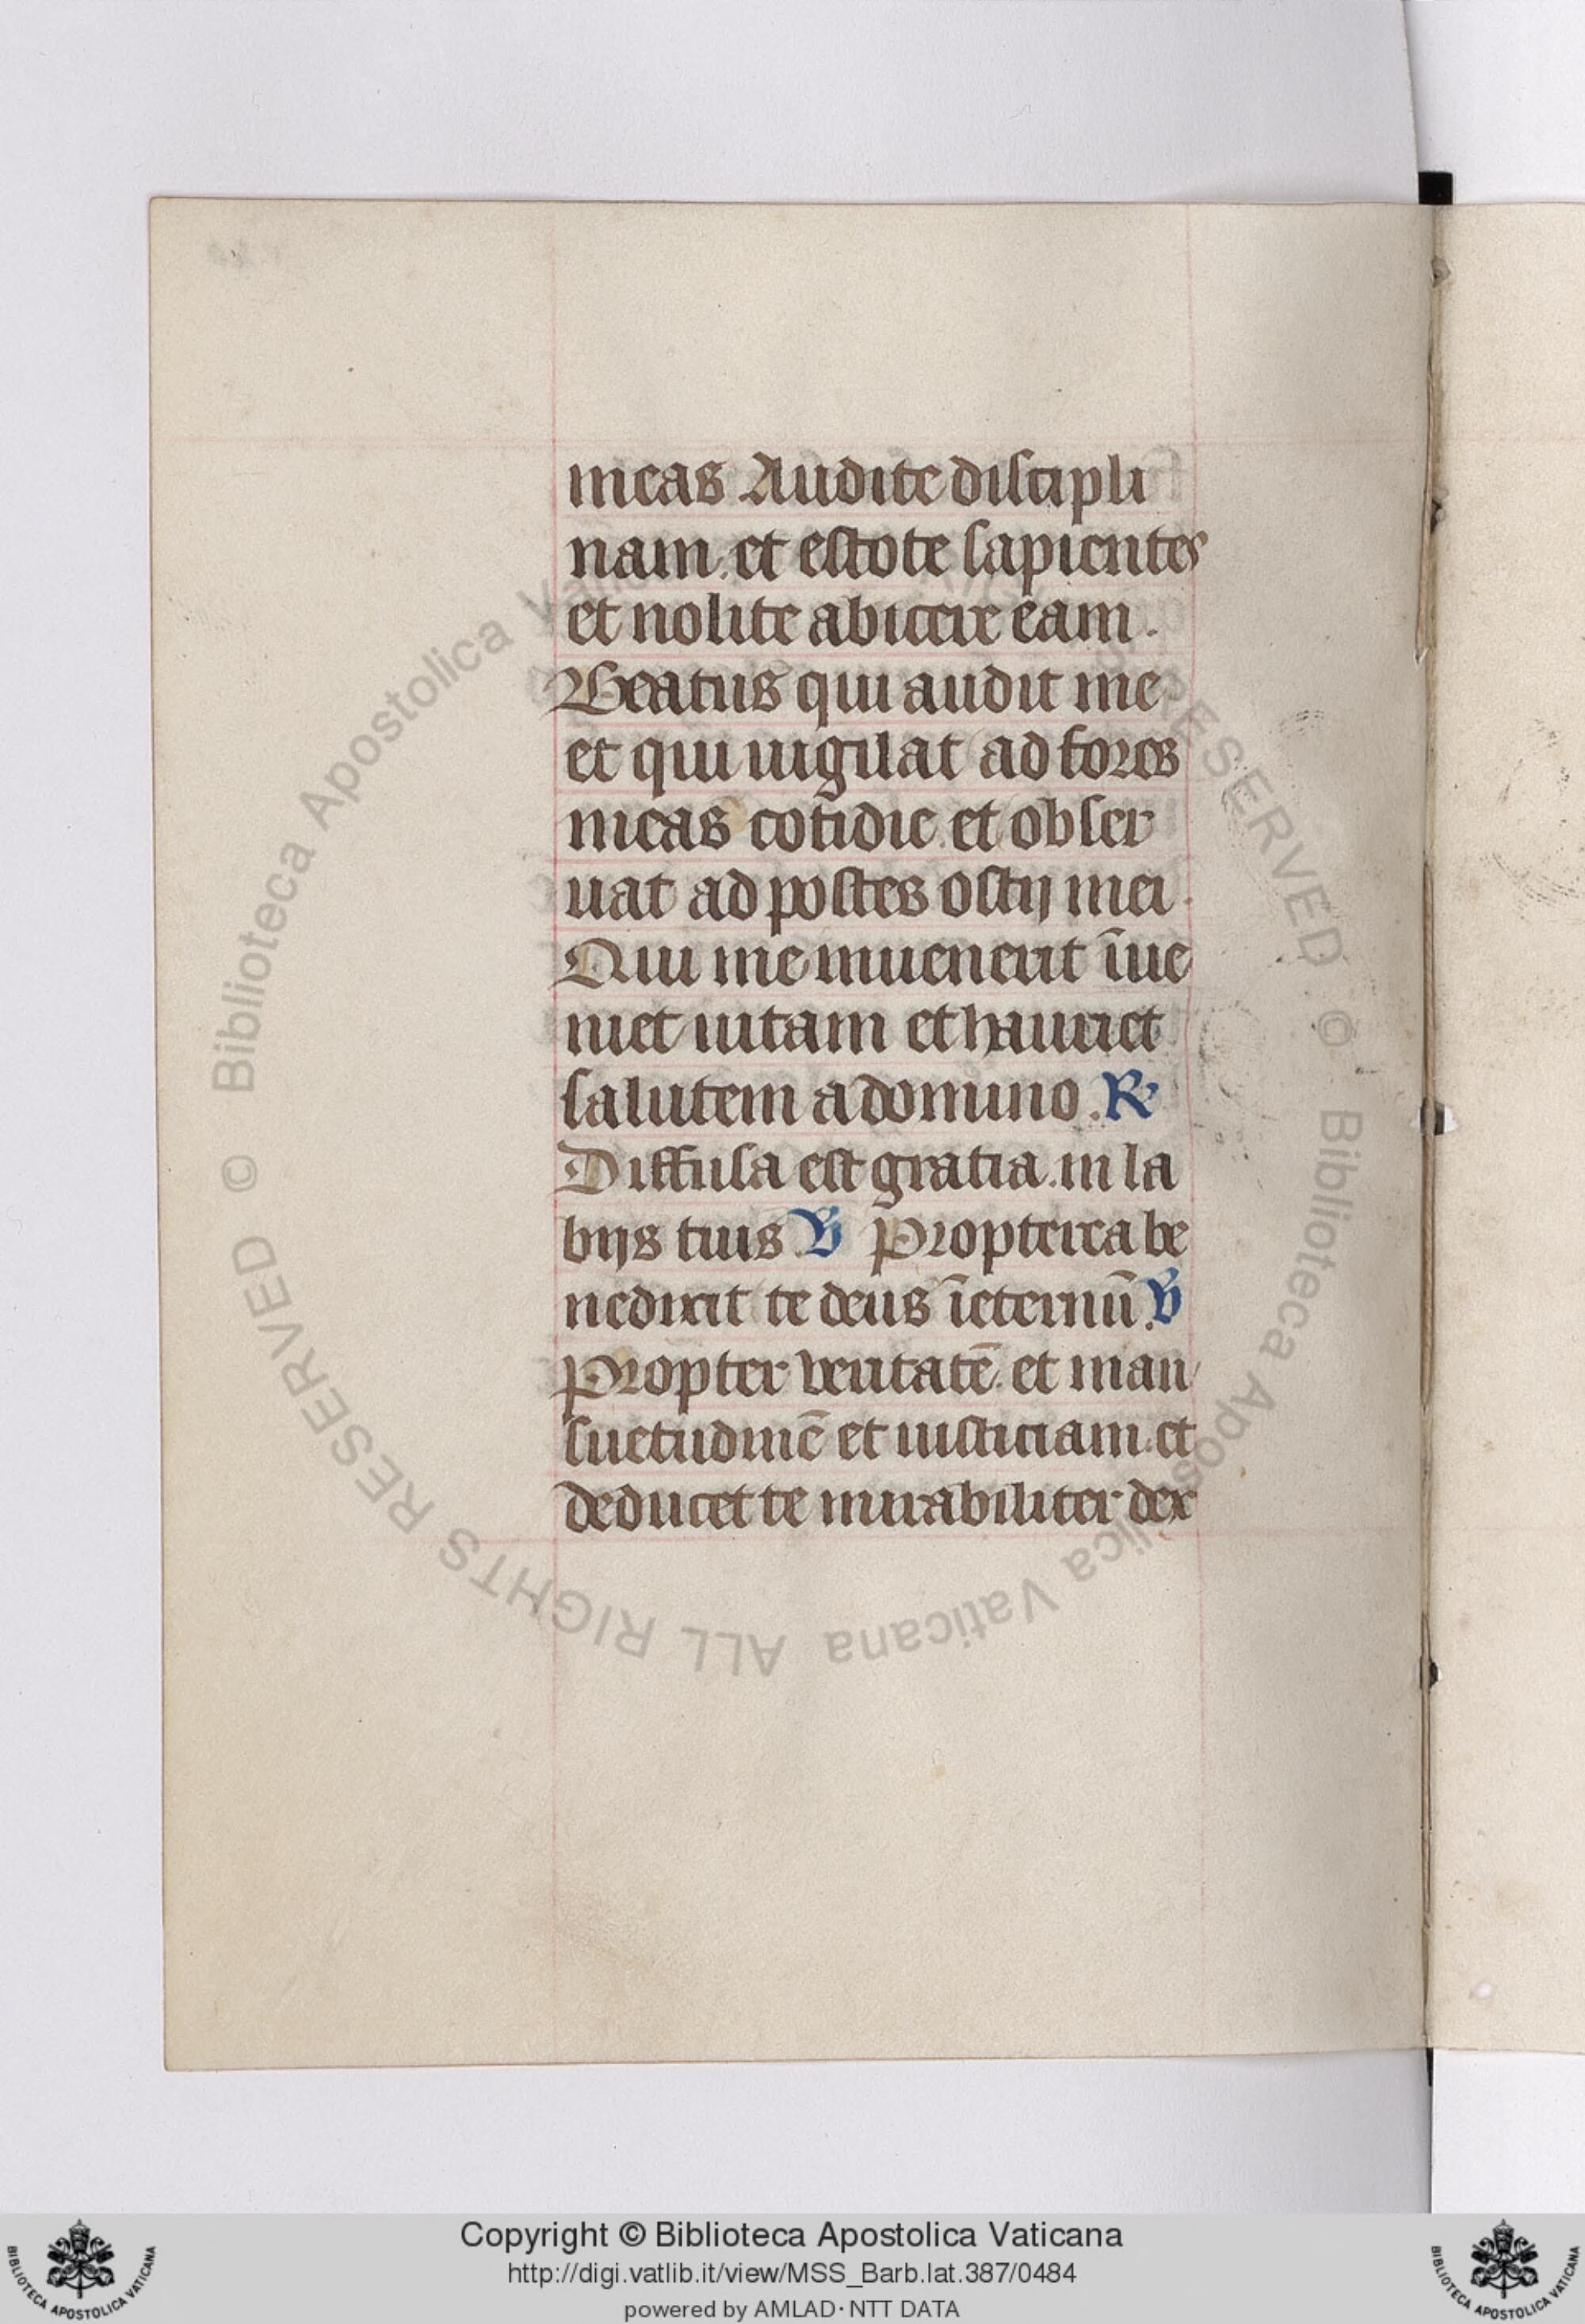 meas Audite discipli
nam. et estote sapientes
et nolite abicere eam.
Beatus qui audit me
et qui uigilat ad fores
meas cotidie. et obser
uat ad postes ostij mei.
Qui me inuenerit īue
niet uitam et hauriet
salutem a domino. R
Diffusa est gratia. in la
bijs tuis. V Propterea be
nedixit te deus īeternū. V
Propter veritatē. et man
suetudinē et iusticiam. et
deducet te mirabiliter dex
© Biblioteca Apostolica Vaticana ALL RIGHTS RESERVED © Biblioteca Apostolica Vaticana ALL RIGHTS RESERVED
Copyright © Biblioteca Apostolica Vaticana
http://digi.vatlib.it/view/MSS_Barb.lat.387/0484
powered by AMLAD·NTT DATA
BIBLIOTECA APOSTOLICA VATICANA
BIBLIOTECA APOSTOLICA VATICANA